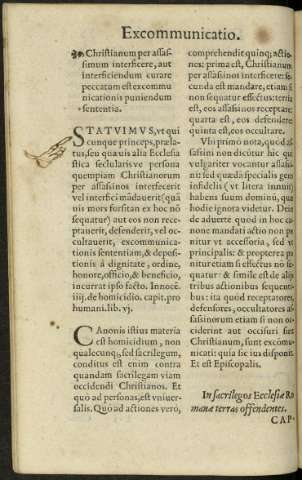 Excommunicatio.
Christianum per assas-
sinum interficere, aut
interficiendum curare
peccatum est excommu
nicationis puniendum
sententia.
STATVIMVS, vt qui
cunque princeps, præla-
tus, seu quauis alia Ecclesia
stica sęcularisve persona
quempiam Christianorum
per assasinos interfecerit
vel interfici mādauerit (quā
uis mors fursitan ex hoc nō
sequatur) aut eos non rece
ptauerit, defenderit, vel oc-
cultauerit, excommunica-
tionis sententiam, & deposi-
tionis à dignitate, ordine,
honore, officio, & beneficio,
incurrat ipso facto. Innocē.
iiij. de homicidio. capit. pro
humani. lib. vj.
CAnonis istius materia
est homicidium, non
qualecunq;, sed sacrilegum,
conditus est enim contra
quandam sacrilegam viam
occidendi Christianos. Et
quò ad personas, est vniuer-
salis. Quò ad actiones verò,
comprehendit quinq; actio
nes: prima est, Christianum
per assasinos interficere: se-
cunda est mandare, etiam si
non sequatur effectus: tertia
est, eos assasinos receptare:
quarta est, eos defendere
quinta est, eos occultare.
Vbi primò nota, quòd as-
sassini non dicuntur hic qui
vulgariter vocantur assassi-
ni sed quædā specialis gens
infidelis (vt litera innuit)
habens suum dominū, quæ
hodie ignota videtur. Dein
de aduerte quòd in hoc ca-
none mandati actio non pu
nitur vt accessoria, sed vt
principalis: & propterea pu
nitur etiam si effectus nō se-
quatur: & simile est de alijs
tribus actionibus sequenti-
bus: ita quòd receptatores,
defensores, occultatores as-
sassinorum etiam si non oc-
ciderint aut occisuri sint
Christianum, sunt excomu-
nicati: quia sic ius disponit.
Et est Episcopalis.
In sacrilegos Ecclesiæ Ro
manæ terras offendentes.
CAP-